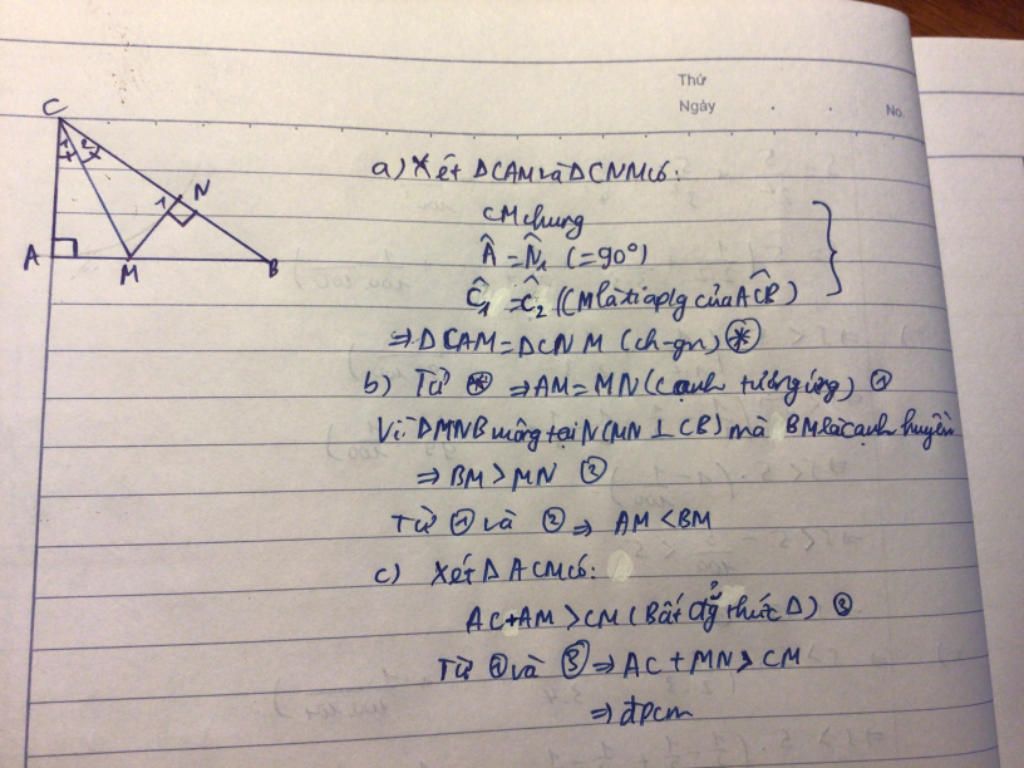 Thứ
Ngày . . No.
C
1 2
N
1
A
M
B
a) Xét ΔCAM và ΔCNM có:
CM chung
Â = N̂₁ (=90°)
Ĉ₁ = Ĉ₂ (CM là tia plg của AĈB)
⇒ ΔCAM = ΔCNM (ch-gn) (*)
b) Từ (*) ⇒ AM = MN (cạnh tương ứng) ①
Vì ΔMNB vuông tại N (MN ⊥ CB) mà BM là cạnh huyền
⇒ BM > MN ②
Từ ① và ② ⇒ AM < BM
c) Xét ΔACM có:
AC + AM > CM (Bất đẳg thức Δ) ③
Từ ① và ③ ⇒ AC + MN > CM
⇒ đpcm